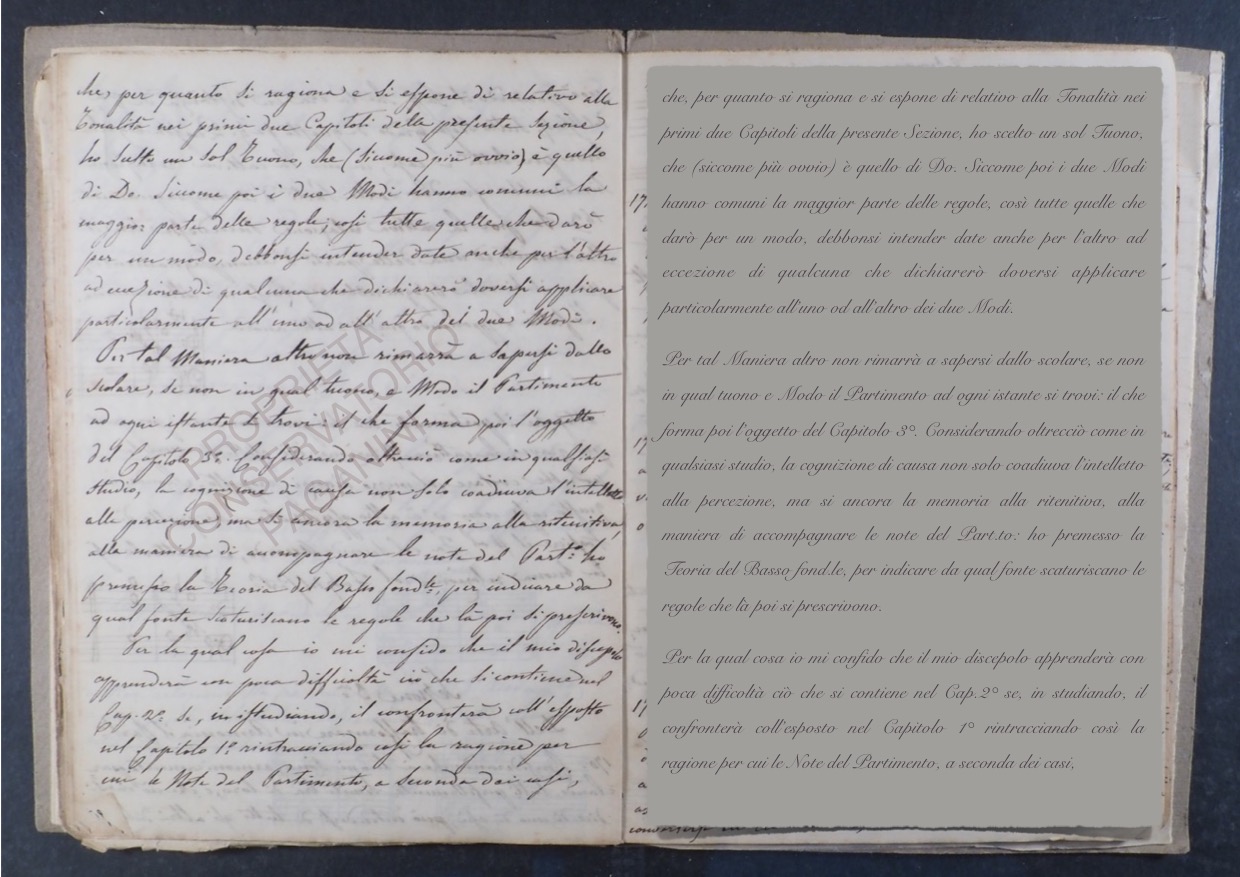 che, per quanto si ragiona e si espone di relativo alla
Tonalità nei primi due Capitoli della presente Sezione,
ho scelto un sol Tuono, che (siccome più ovvio) è quello
di Do. Siccome poi i due Modi hanno comuni la
maggior parte delle regole, così tutte quelle che darò
per un modo, debbonsi intender date anche per l'altro
ad eccezione di qualcuna che dichiarerò doversi applicare
particolarmente all'uno od all'altro dei due Modi.
Per tal Maniera altro non rimarrà a sapersi dallo
scolare, se non in qual tuono, e Modo il Partimento
ad ogni istante si trovi: il che forma poi l'oggetto
del Capitolo 3°. Considerando oltrecciò come in qualsiasi
studio, la cognizione di causa non solo coadiuva l'intelletto
alla percezione, ma si ancora la memoria alla ritenitiva,
alla maniera di accompagnare le note del Part.to ho
premesso la Teoria del Basso fond.le, per indicare da
qual fonte scaturiscano le regole che là poi si prescrivono.
Per la qual cosa io mi confido che il mio discepolo
apprenderà con poca difficoltà ciò che si contiene nel
Cap. 2° se, in istudiando, il confronterà coll'esposto
nel Capitolo 1° rintracciando così la ragione per
cui le Note del Partimento, a seconda dei casi,
PROPRIETA'
CONSERVATORIO
PAGANINI
che, per quanto si ragiona e si espone di relativo alla Tonalità nei
primi due Capitoli della presente Sezione, ho scelto un sol Tuono,
che (siccome più ovvio) è quello di Do. Siccome poi i due Modi
hanno comuni la maggior parte delle regole, così tutte quelle che
darò per un modo, debbonsi intender date anche per l'altro ad
eccezione di qualcuna che dichiarerò doversi applicare
particolarmente all'uno od all'altro dei due Modi.
Per tal Maniera altro non rimarrà a sapersi dallo scolare, se non
in qual tuono e Modo il Partimento ad ogni istante si trovi: il che
forma poi l'oggetto del Capitolo 3°. Considerando oltrecciò come in
qualsiasi studio, la cognizione di causa non solo coadiuva l'intelletto
alla percezione, ma si ancora la memoria alla ritenitiva, alla
maniera di accompagnare le note del Part.to: ho premesso la
Teoria del Basso fond.le, per indicare da qual fonte scaturiscano le
regole che là poi si prescrivono.
Per la qual cosa io mi confido che il mio discepolo apprenderà con
poca difficoltà ciò che si contiene nel Cap.2° se, in studiando, il
confronterà coll'esposto nel Capitolo 1° rintracciando così la
ragione per cui le Note del Partimento, a seconda dei casi,